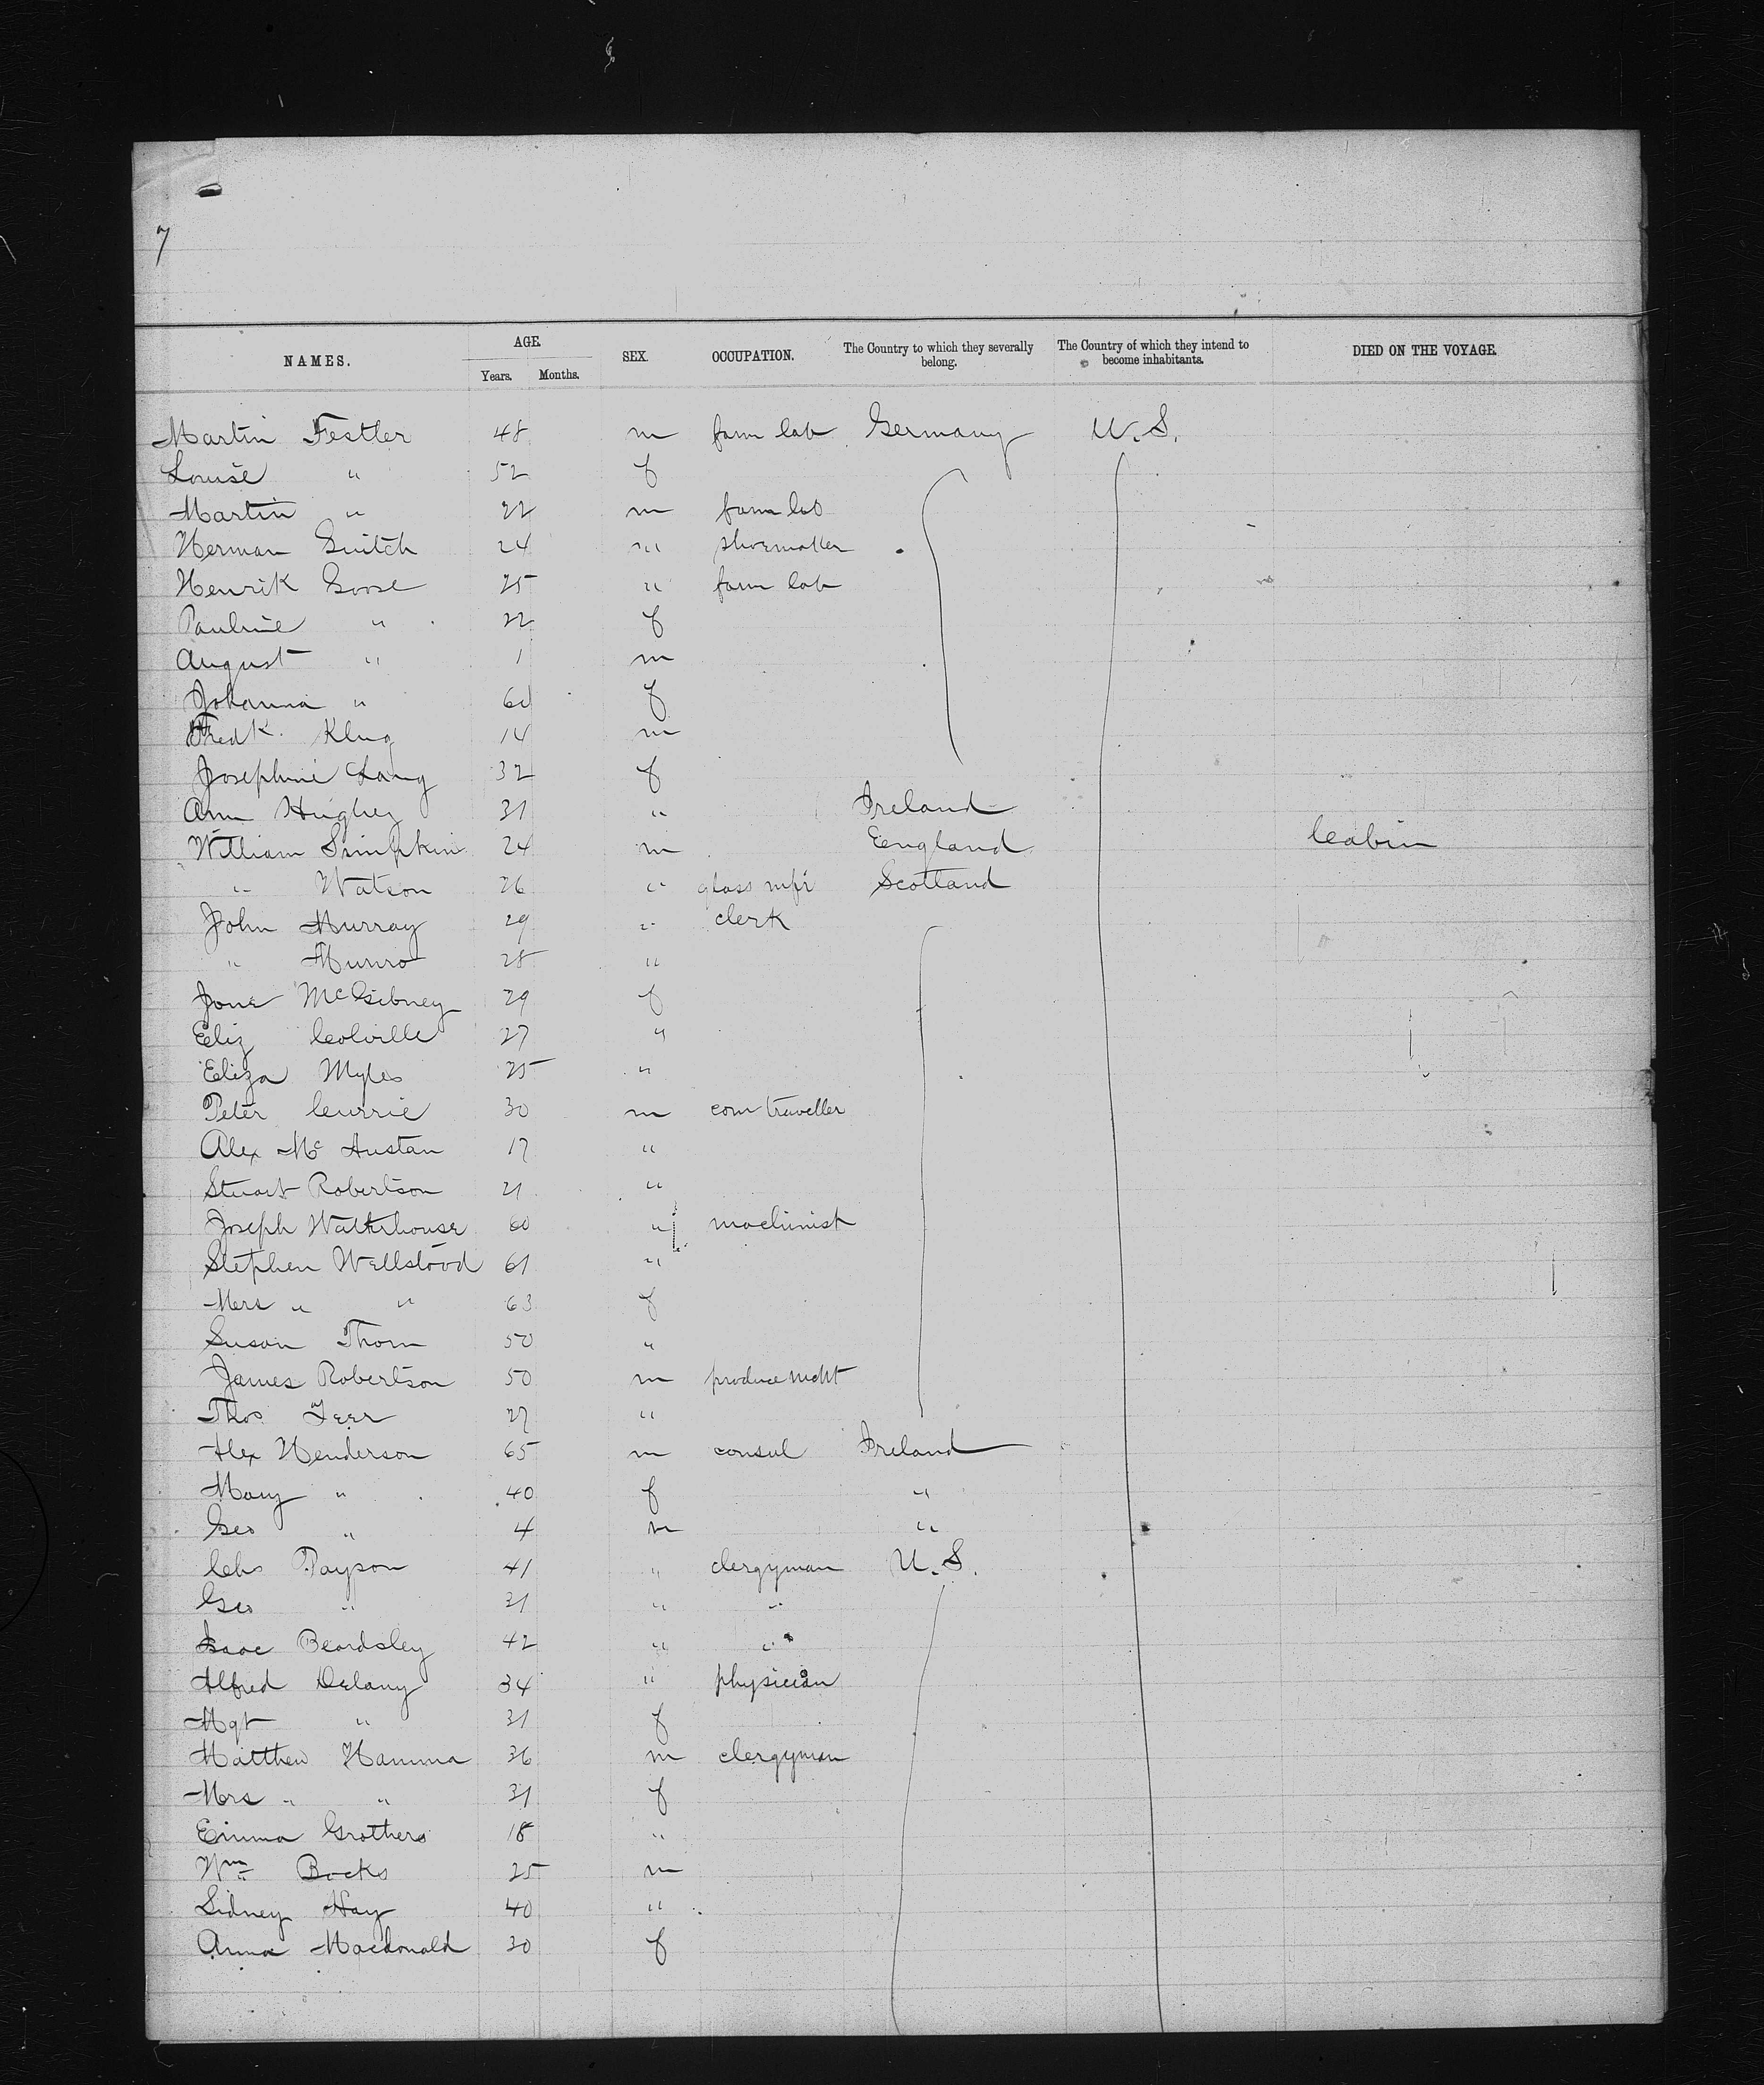 7
NAMES. AGE. SEX. OCCUPATION. The Country to which they severally belong. The Country of which they intend to become inhabitants. DIED ON THE VOYAGE.
Years. Months.
Martin Festler 48 m farm lab Germany U.S.
Louise " 52 f
Martin " 22 m farm lab
Herman Guitch 24 " shoemaker
Henrik Goose 25 " farm lab
Pauline " 22 f
August " 1 m
Johanna " 60 f
Fredk. Klug 14 m
Josephine Lang 32 f
Ann Hughes 31 " Ireland
William Simpkin 24 m England Cabin
" Watson 26 " glass mfr Scotland
John Murray 29 " clerk
" Munro 28 "
Jane McGibney 29 f
Eliz Colville 27 "
Eliza Myles 25 "
Peter Currie 30 m com traveller
Alex Mc Austan 17 "
Stuart Robertson 21 "
Joseph Waterhouse 60 " machinist
Stephen Wellstood 61 "
Mrs " " 63 f
Susan Thom 50 "
James Robertson 50 m produce mcht
Thos Teer 27 "
Alex Henderson 65 m consul Ireland
Mary " 40 f "
Geo " 4 m "
Chs Payson 41 " clergyman U.S.
Geo " 31 " "
Isaac Beardsley 42 " "
Alfred Delany 34 " physician
Mgt " 31 f
Matthew Hamma 36 m clergyman
Mrs " " 31 f
Emma Grothers 18 "
Wm Backs 25 m
Sidney Hay 40 "
Anna Macdonald 30 f